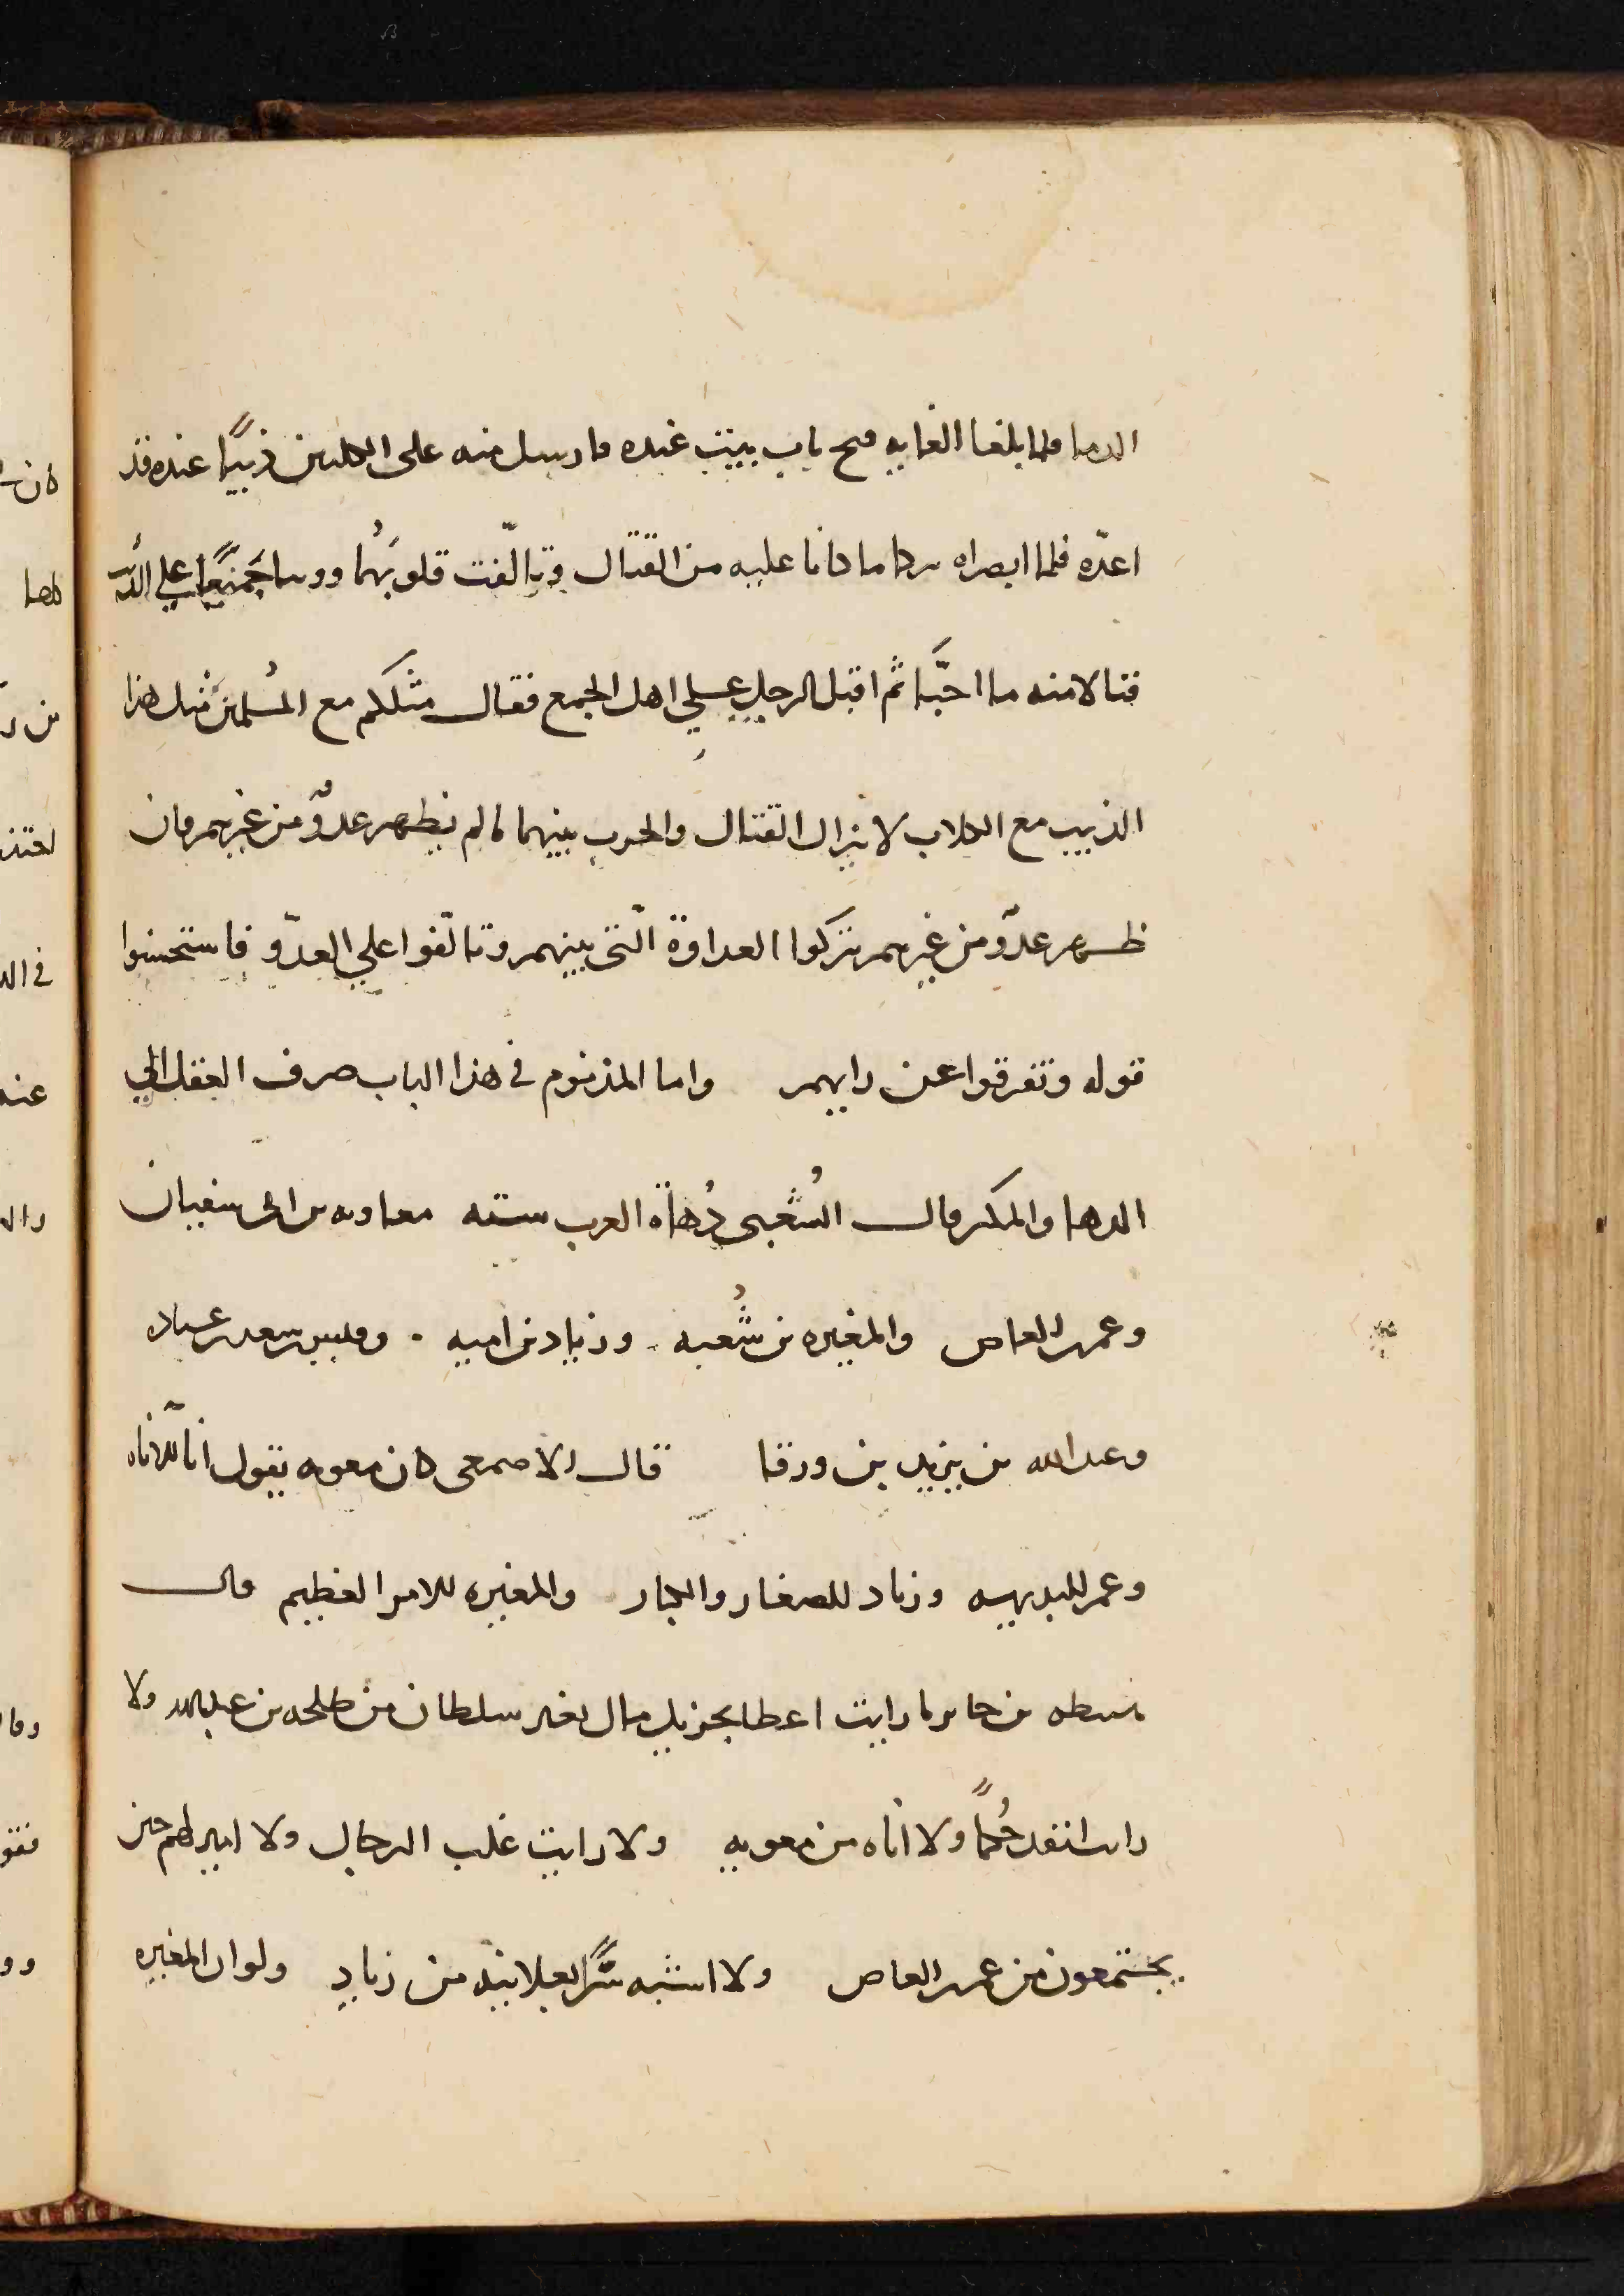 الدما فلما بلغا الغايه فتح باب بيت عنده فارسل منه على الكلبين ذيبًا عنده قد
اعدّه فلما ابصراه تركا ما كانا عليه من القتال وتالّفت قلوبهُما ووثبا جَميعًا على الذيب
فنالا منه ما احبّا ثم اقبل الرجل على اهل الجمع فقال مثلكم مع المُسلمين مَثل هذا
الذيب مع الكلاب لا يزال القتال والحرب بينهما مالم يظهر عدوٌّ من غيرهم فان
ظهر عدوّ من غيرهم تركوا العداوة الّتى بينهم وتالّفوا على العدوّ فاستحسنوا
قوله وتفرقوا عن رايهم واما المذموم فى هذا الباب صرف العقل الى
الدها والمكر قال الشُعبى دُهاة العرب سته معاويه بن ابى سفيان
وعمر بن العاص والمغيره بن شُعبه وزياد بن اميه . وقيس بن سعد بن عباد
وعبد الله بن يزيد بن ورقا قال الاصمعى كان معويه يقول انا للاناه
وعمر للبديهيه وزياد للصغار والكبار والمغيره للامر العظيم قال
بن جابر ما رايت اعطا بجزيل مال بغير سلطان من طلحه بن عبد الله ولا
رايت انفد حُكمًا ولا اناه من معويه ولا رايت غلب الرجال ولا ابير لهم حين
يجتمعون من عمر بن العاص ولا اشبه سرًّا بعلانيه من زياد ولو ان المغيره